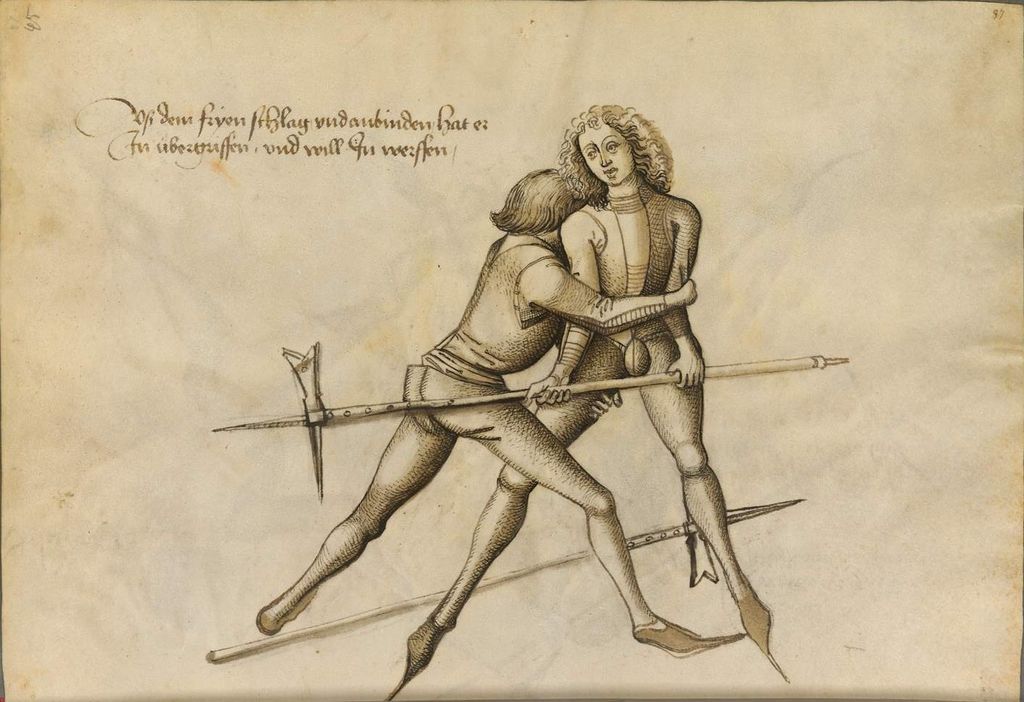 Vß dem fryen schlag vnd anbinden hat er
In übergriffen, vnd will In werffen,
87